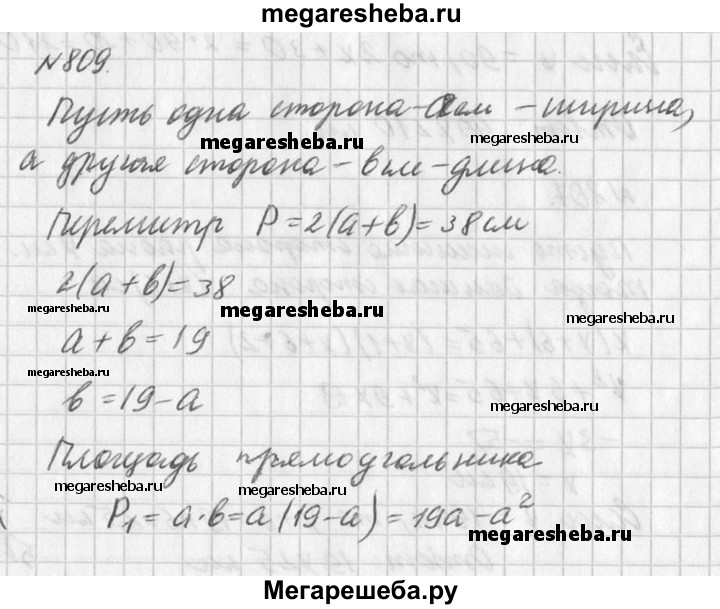 megaresheba.ru
N809.
Пусть одна сторона - а см - ширина,
megaresheba.ru
megaresheba.ru
а другая сторона - в см - длина.
megaresheba.ru
Периметр P = 2(a+в) = 38 см
2(a+в) = 38
megaresheba.ru
megaresheba.ru
megaresheba.ru
a + в = 19
megaresheba.ru
в = 19 - a
megaresheba.ru
Площадь прямоугольника
megaresheba.ru
megaresheba.ru
P₁ = a·в = a(19-a) = 19a - a²
megaresheba.ru
Мегарешеба.ру